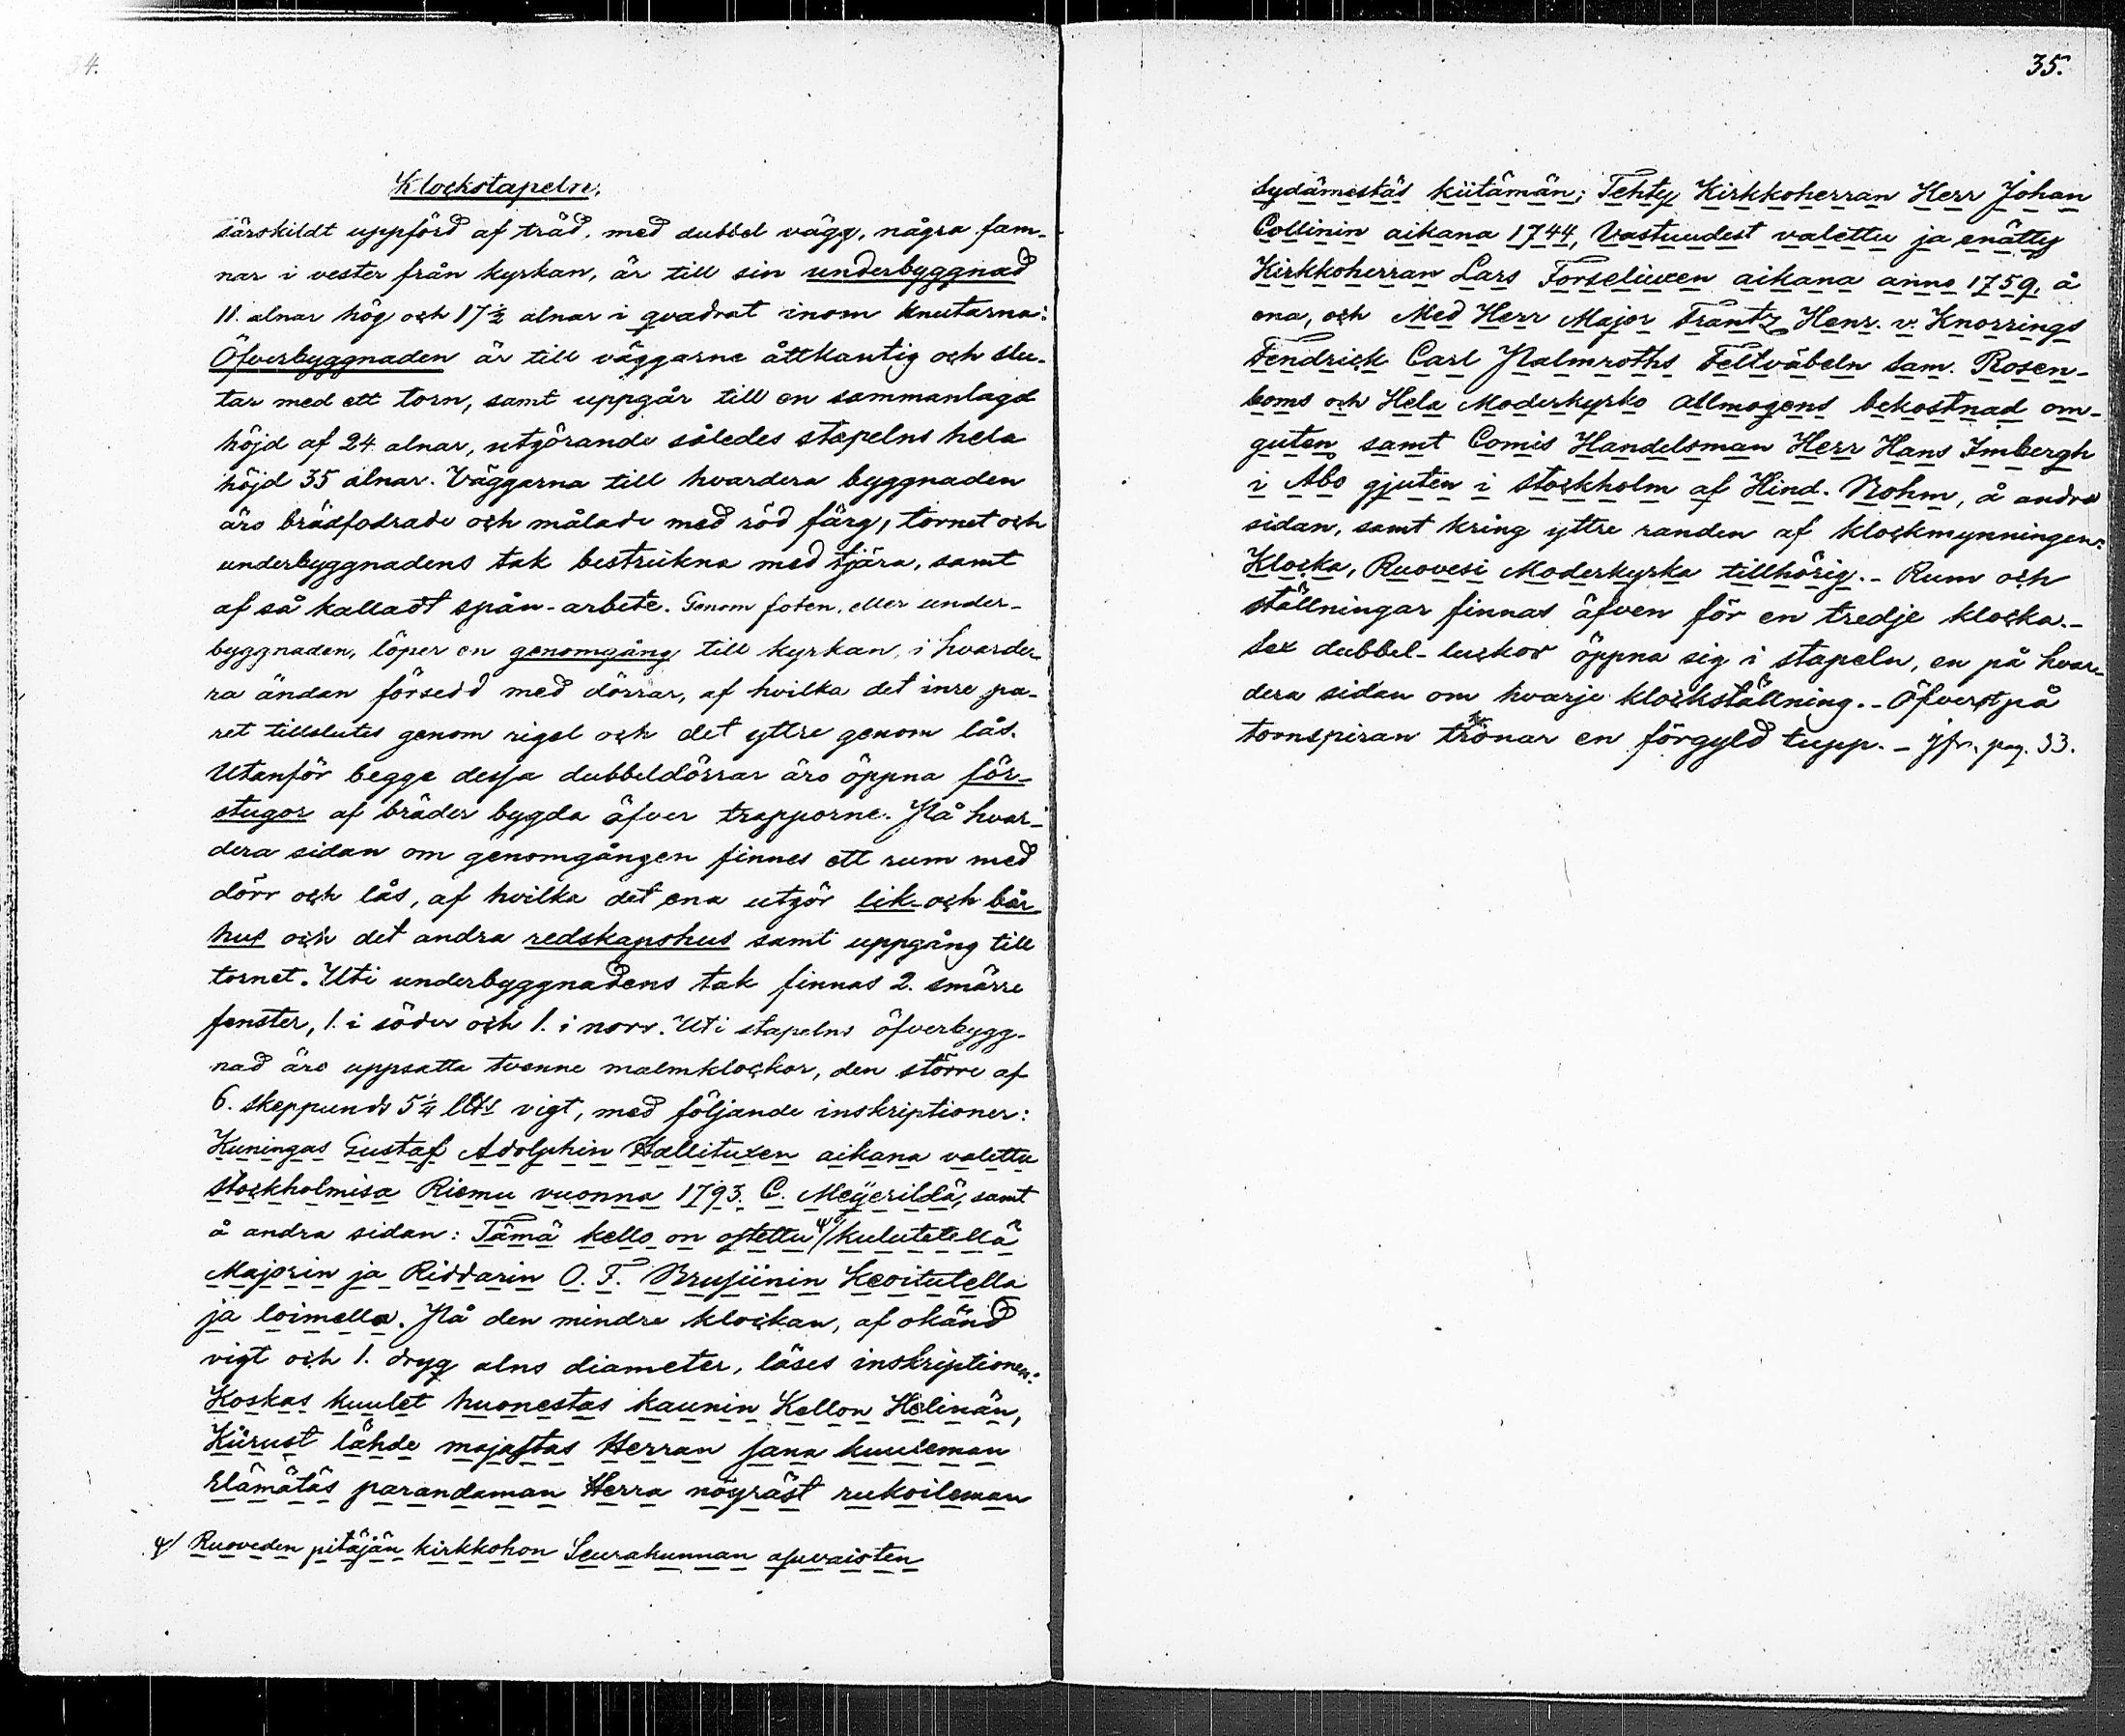 34.
Klockstapeln.
särskildt uppförd af träd, med dubbel vägg, några fam-
nar i vester från kyrkan, är till sin underbyggnad
11. alnar hög och 17½ alnar i qvadrat inom knutarna:
Öfverbyggnaden är till väggarne åttkantig och slu-
tar med ett torn, samt uppgår till en sammanlagd
höjd af 24 alnar, utgörande således stapelns hela
höjd 35 alnar. Väggarna till hvardera byggnaden
äro brädfodrade och målade med röd färg, tornet och
underbyggnadens tak bestrukna med tjära, samt
af så kalladt spån-arbete. Genom foten, eller under-
byggnaden, löper en genomgång till kyrkan, i hvarde-
ra ändan försedd med dörrar, af hvilka det inre pa-
ret tillslutes genom rigel och det yttre genom lås.
Utanför begge dessa dubbeldörrar äro öppna för-
stugor af bräder bygda öfver trapporne. På hvar-
dera sidan om genomgången finnes ett rum med
dörr och lås, af hvilka det ena utgör lik- och bår-
hus och det andra redskapshus samt uppgång till
tornet. Uti underbyggnadens tak finnas 2. smärre
fenster, 1. i söder och 1. i norr. Uti stapelns öfverbygg-
nad äro uppsatta tvenne malmklockor, den större af
6. skeppunds 5¼ vigt, med följande inskriptioner:
Kuningas Gustaf Adolphin Hallituxen aikana valettu
Stockholmisa Riemu vuonna 1793. C. Meÿerildä, samt
å andra sidan: Tämä kello on ostettu ψ/ kulutetellä
Majorin ja Riddarin O. F. Brusiinin
ja loimella. På den mindre klockan, af okänd
vigt och 1. dryg alns diameter, läses inskriptionen:
Koskas kuulet huonestas kaunin Kellon Helinän,
Kiirust lähde majastas Herran sana kuuleman
Elämätäs parandaman Herra nöyräst rukoileman
ψ/ Ruoveden pitäjän kirkkohon Seurakunnan asuvaisten
35.
Sydämestäs kiitämän; Tehty Kirkkoherran Herr Johan
Collinin aikana 1744, Vastuudest valettu ja enätty
Kirkkoherran Lars Forseliuxen aikana anno 1759, å
ena, och Med Herr Major Frantz Henr. v. Knorrings
Fendrick Carl Palmroths Feltväbeln Sam. Rosen-
boms och Hela Moderkyrko Allmogens bekostnad om-
guten samt Comis Handelsman Herr Hans Imbergh
i Åbo gjuten i Stockholm af Hind. Rohm, å andra
sidan, samt kring yttre randen af klockmynningen:
Klocka, Ruovesi Moderkyrka tillhörig. - Rum och
ställningar finnas äfven för en tredje klocka. -
Sex dubbel-luckor öppna sig i stapeln, en på hvar-
dera sidan om hvarje klockställning. - Öfverst på
tornspiran trönar en förgyld tupp. - jfr. pag. 33.